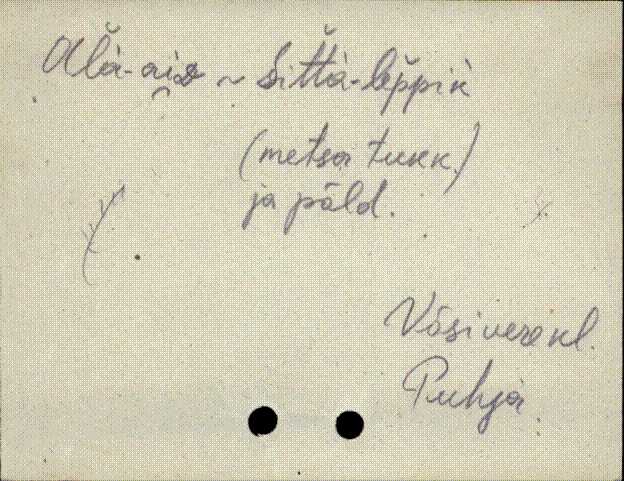 Ala̮-aia̯ ~ Sit̆tà-lĕppik̀
(metsa tukk)
ja põld.
Võsivere kl.
Puhja.